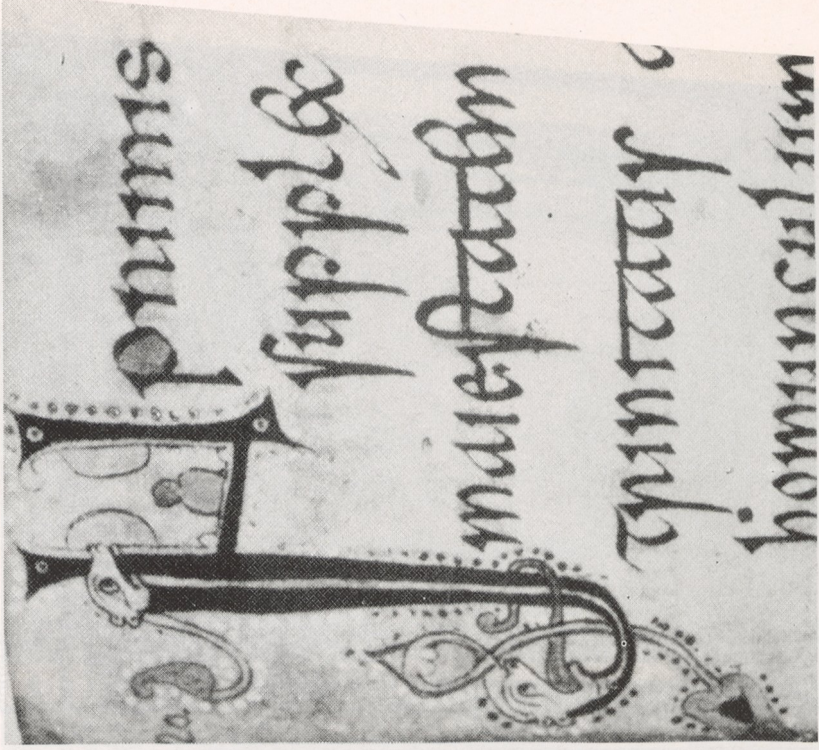 IN primis
supplex
maiestatem
trinitatis
homunculum